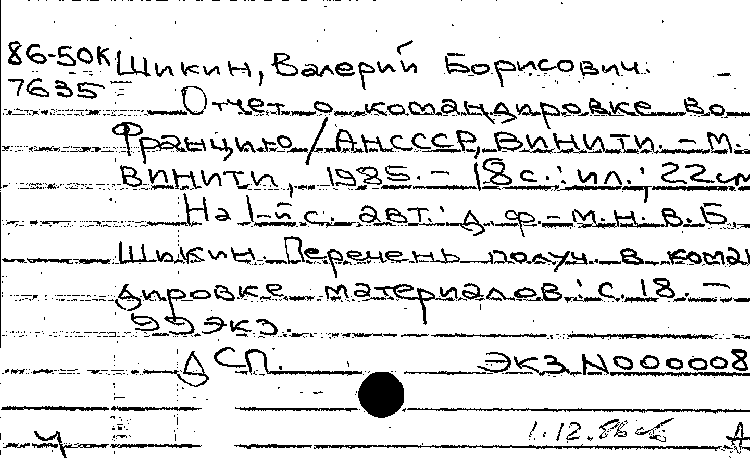 86-50К Шикин, Валерий Борисович. -
7635 Отчет о командировке во
Францию / АНСССР, ВИНИТИ. - М.:
ВИНИТИ, 1985. - 18 с.: ил.; 22 см
На 1-й с. авт.: д. ф.-м. н. В. Б.
Шикин. Перечень получ. в коман
дировке материалов: с. 18. -
99 экз.
ДСП. ЭКЗ N000008
Ч 1.12.86 А